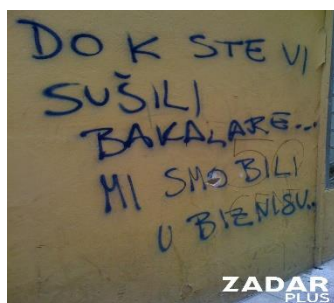 DO K STE VI
SUŠILI
BAKALARE...
MI SMO BILI
U BIZNISU..
ZADAR
PLUS